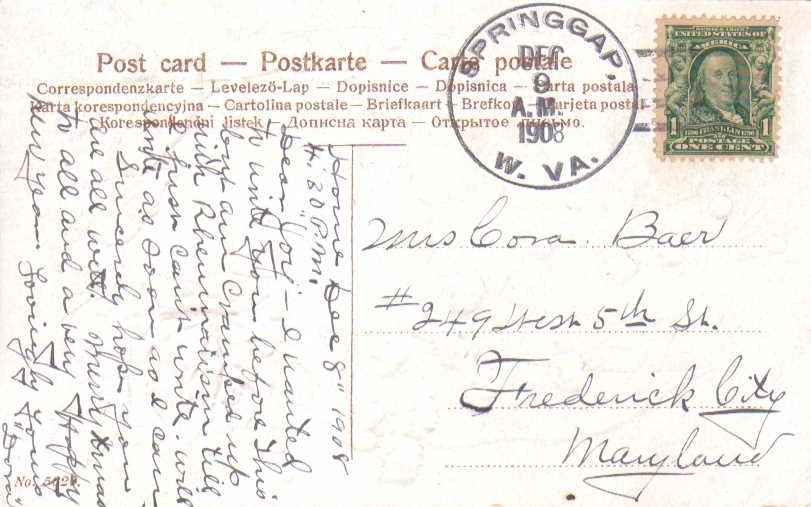 Post card — Postkarte — Carte postale
Correspondenzkarte — Levelező-Lap — Dopisnice — Dopisnica — Carta postala
Karta korespondencyjna — Cartolina postale — Briefkaart — Brefkort
Korespondenční lístek — Дописна карта — Открытое письмо.
SPRINGGAP,
DEC
9
A.M.
1908
W. VA.
UNITED STATES OF
AMERICA
1 FRANKLIN 1
POSTAGE
ONE CENT
Mrs Cora Baer
#249 West 5th St.
Frederick City
Maryland
Home Dec 8" 1908
4.30 P.M.
Dear Cori - I wanted
to write you before this
but am cramped up
with Rheumatism till
just can't write. will
write as soon as I can
Sincerely hope you
are all well. Merry Xmas
to all and a very Happy
New Year Lovingly Yours
Dora
No. 562